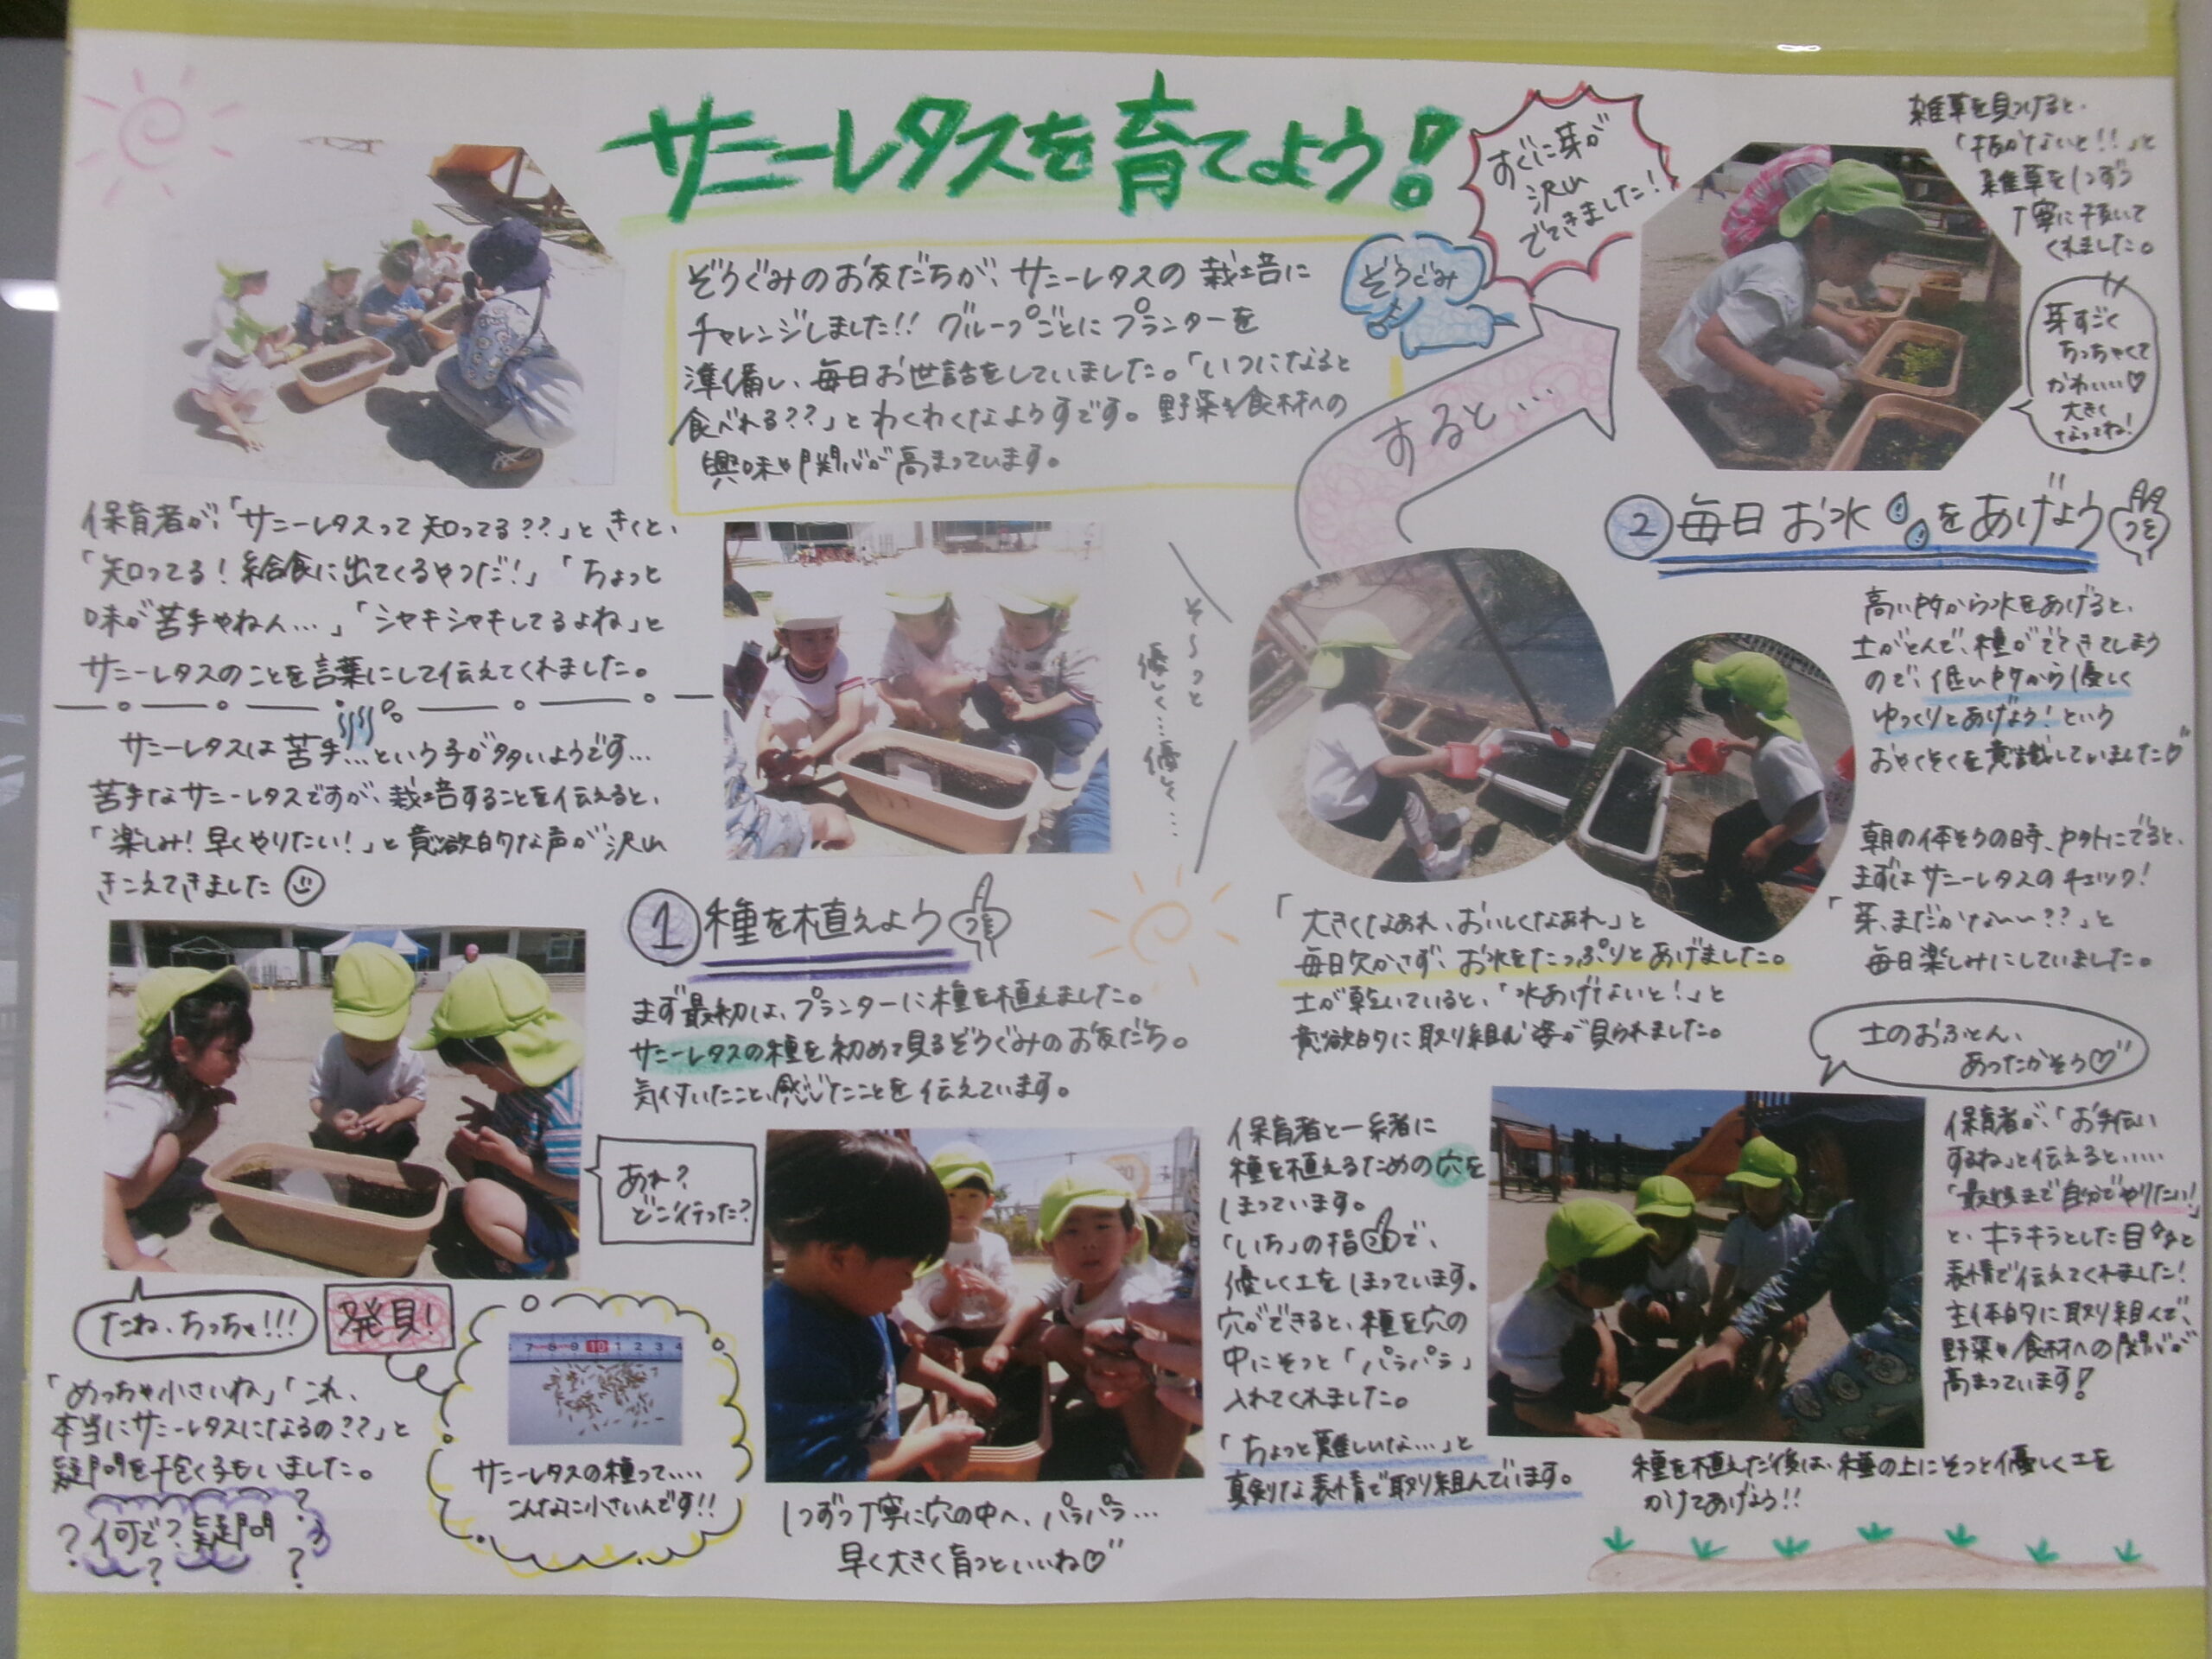 サニーレタスを育てよう!
ぞうぐみのお友だちが、サニーレタスの栽培に
チャレンジしました!! グループごとにプランターを
準備し、毎日お世話をしていました。「いつになると
食べれる??」とわくわくなようすです。野菜や食材への
興味や関心が高まっています。
ぞうぐみ
保育者が、「サニーレタスって知ってる??」ときくと、
「知ってる!給食に出てくるやつだ!」「ちょっと
味が苦手やねん…」「シャキシャキしてるよね」と
サニーレタスのことを言葉にして伝えてくれました。
サニーレタスは苦手…という子が多いようです…
苦手なサニーレタスですが、栽培することを伝えると、
「楽しみ!早くやりたい!」と意欲的な声が沢山
きこえてきました
①種を植えよう
まず最初は、プランターに種を植えました。
サニーレタスの種を初めて見るぞうぐみのお友だち。
気付いたこと、感じたことを伝えています。
あれ?
どこ行った?
たね、ちっちゃ!!!
発見!
「めっちゃ小さいね」「これ、
本当にサニーレタスになるの??」と
疑問を抱く子もいました。
?何で?疑問?
? ?
7 8 9 10 1 2 3 4
サニーレタスの種って....
こんなに小さいんです!!
1つずつ丁寧に穴の中へ、パラパラ…
早く大きく育つといいね♡
保育者と一緒に
種を植えるための穴を
ほっています。
「いち」の指で、
優しく土をほっています。
穴ができると、種を穴の
中にそっと「パラパラ」
入れてくれました。
「ちょっと難しいな…」と
真剣な表情で取り組んでいます。
そ〜っと
優しく…優しく…
土のおふとん、
あったかそう♡
保育者が、「お手伝い
するね」と伝えると.....
「最後まで自分でやりたい!」
と、キラキラとした目と
表情で伝えてくれました!
主体的に取り組んで、
野菜や食材への関心が
高まっています!
種を植えた後は、種の上にそっと優しく土を
かけてあげよう!!
②毎日お水をあげよう
高い所から水をあげると、
土がとんで、種がでてきてしまう
ので、低い所から優しく
ゆっくりとあげよう!という
おやくそくを意識していました♡
朝の体そうの時、戸外にでると、
まずはサニーレタスのチェック!
「芽、まだかなぁ〜??」と
毎日楽しみにしていました。
「大きくなあれ、おいしくなあれ」と
毎日欠かさず、お水をたっぷりとあげました。
土が乾いていると、「水あげてないと!」と
意欲的に取り組む姿が見られました。
すると…
すぐに芽が
沢山
でてきました!
雑草を見つけると、
「抜かないと!!」と
雑草を1つずつ
丁寧に抜いて
くれました。
芽すごく
ちっちゃくて
かわいい♡
大きく
なってね!